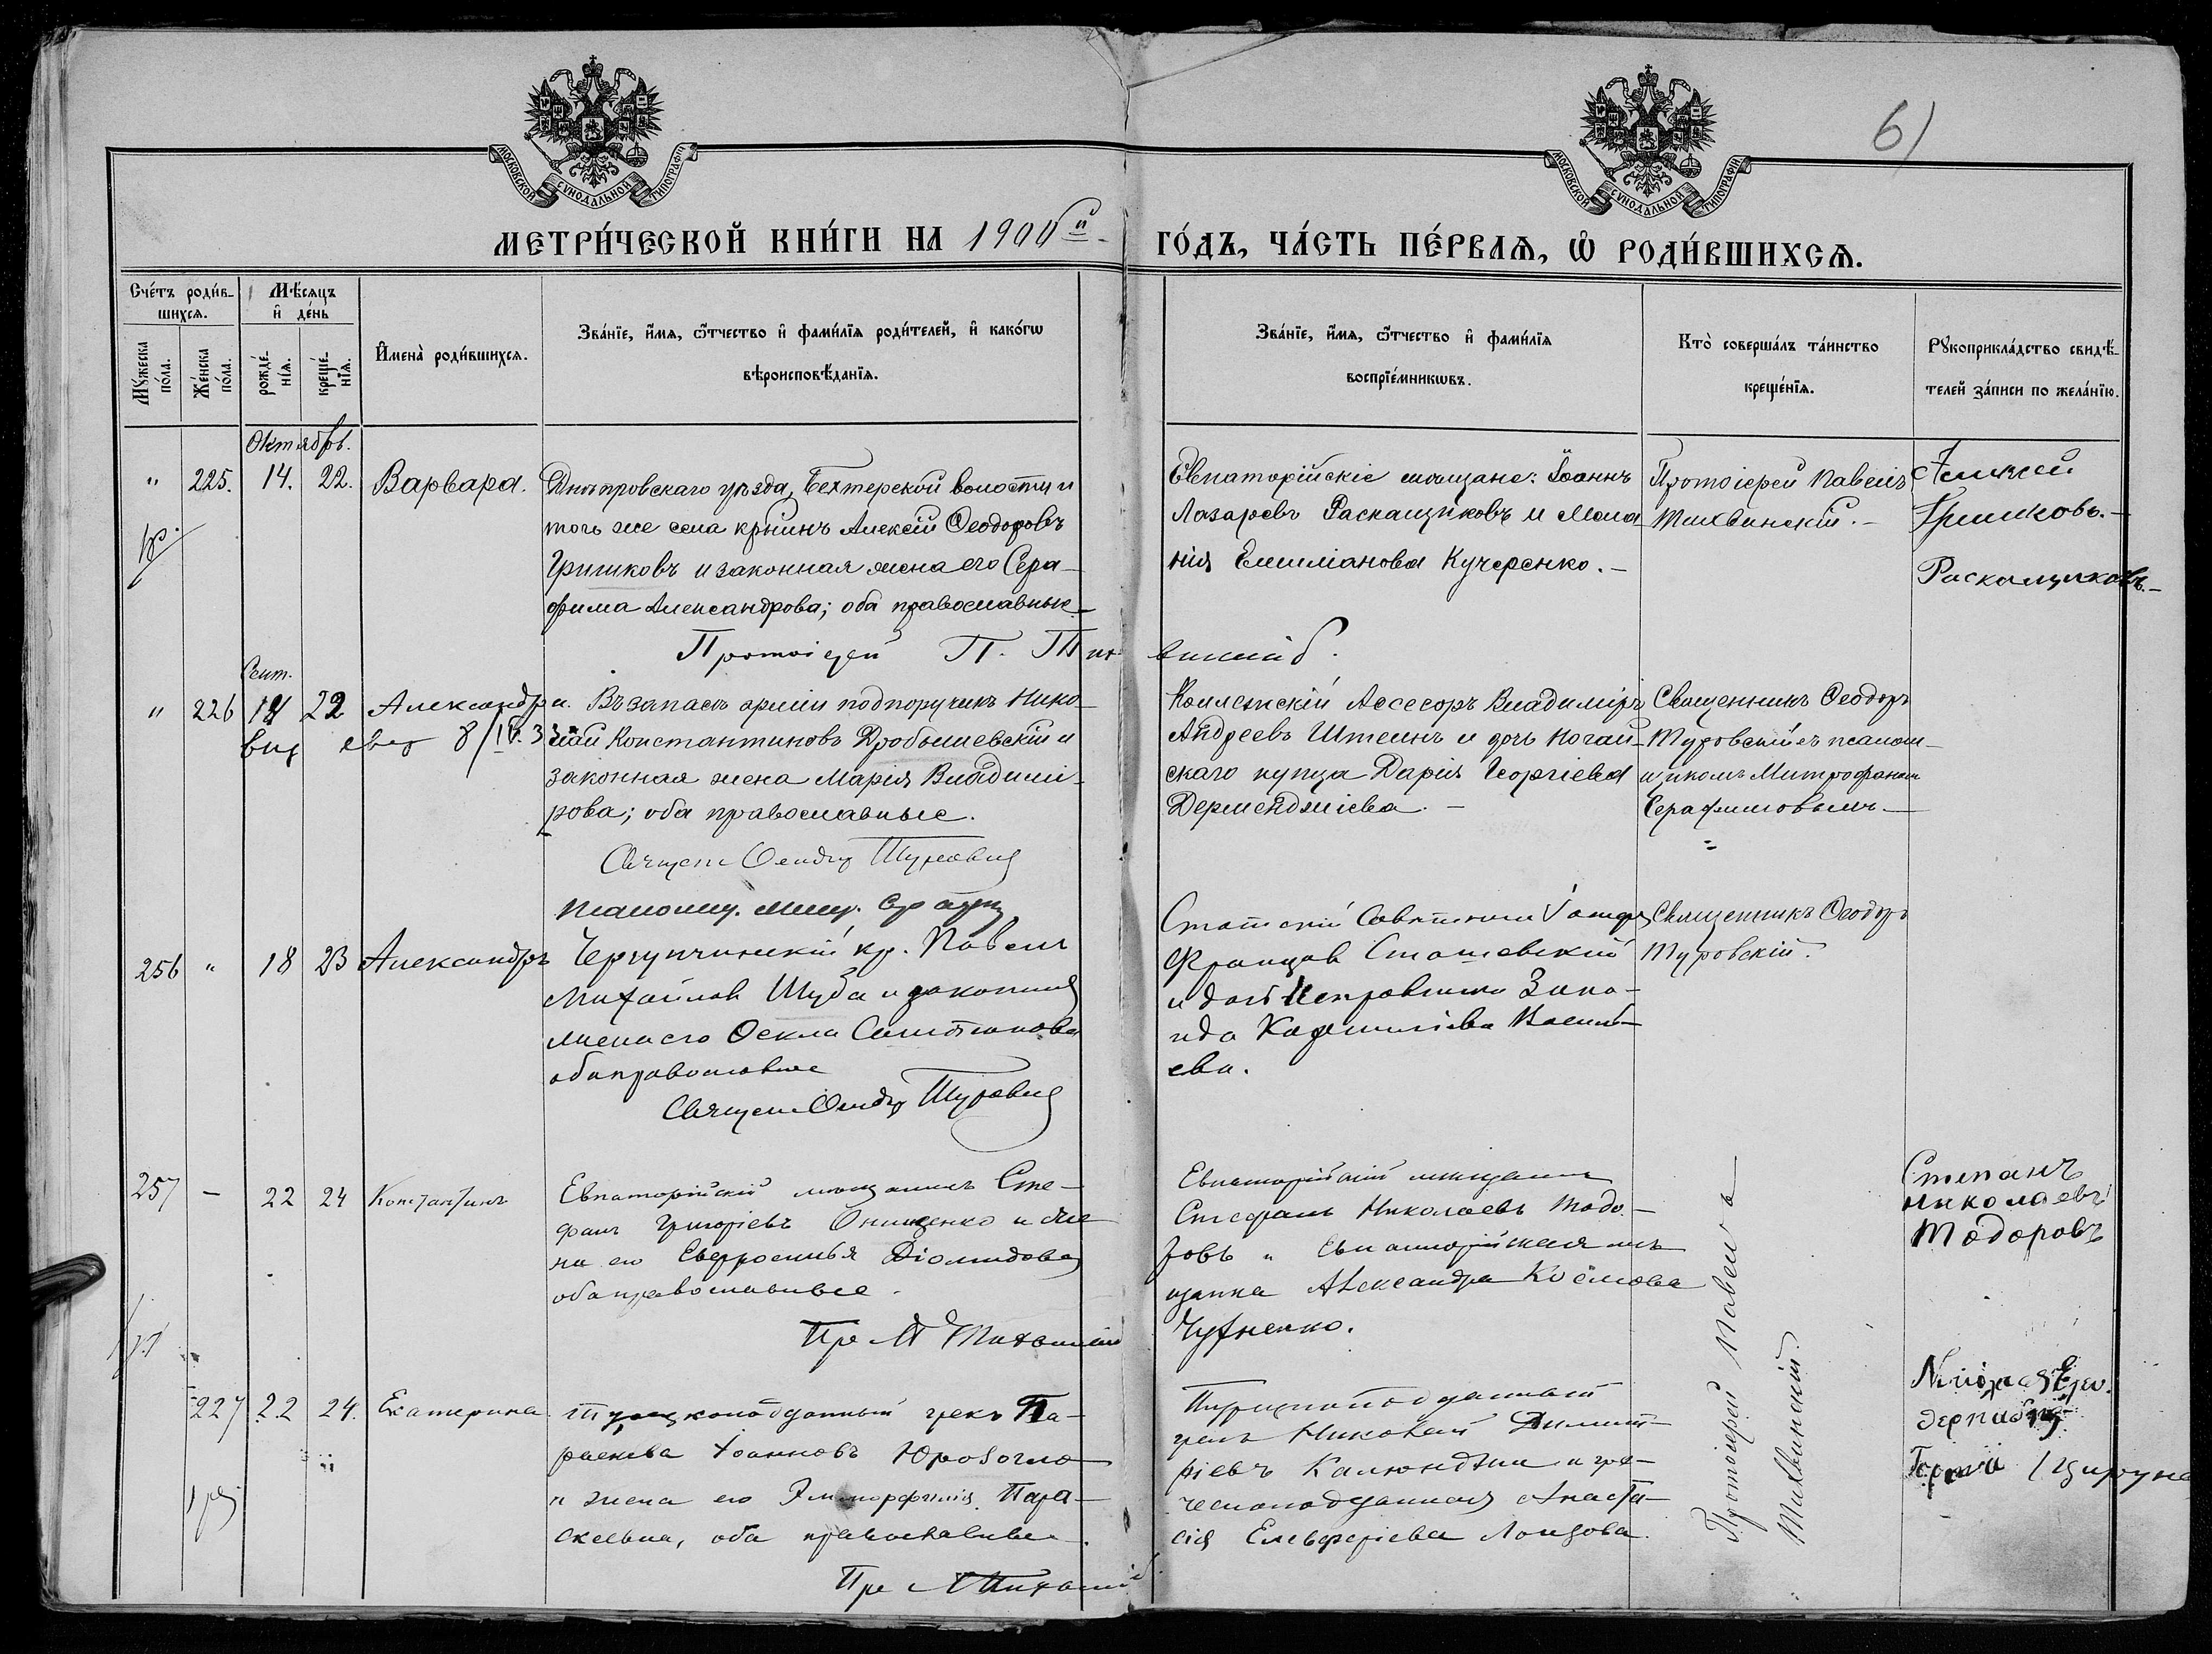 61
МОСКОВСКОЙ СѴНОДАЛЬНОЙ ТИПОГРАФІИ
МОСКОВСКОЙ СѴНОДАЛЬНОЙ ТИПОГРАФІИ
МЕТРИ́ЧЕСКОЙ КНИ́ГИ НА 1900й ГО́ДЪ, ЧА́СТЬ ПЕ́РВАѦ, Ѡ РОДИ́ВШИХСѦ.
Сче́тъ роди́в-
шихсѧ.
Мꙋжеска по́ла.
Же́нска по́ла.
Мѣ́сѧцъ и҆ де́нь
рожде́-
нїѧ.
креще́-
нїѧ.
И҆мена̀ роди́вшихсѧ.
Зва́нїе, и҆́мѧ, ѻ҆́тчество и҆ фами́лїѧ роди́телей, и҆ како́гѡ
вѣроисповѣ́данїѧ.
Зва́нїе, и҆́мѧ, ѻ҆́тчество и҆ фами́лїѧ
воспрїе́мникѡвъ.
Кто̀ соверша́лъ та́инство
креще́нїѧ.
Рꙋкоприкла́дство свидѣ́-
телей за́писи по жела́нїю.
Октябрь.
" 225. 14. 22. Варвара.
Днѣпровскаго уѣзда, Бехтерской волости и
того же села кр̃нинъ Алексій Ѳеодоровъ
Гришковъ и законная жена его Сера-
фима Александрова; оба православные
Протоіерей П. Тихвинскій.
Евпаторійскіе мѣщане: Іоаннъ
Лазаревъ Раскащиковъ и Мела-
нія Емиліанова Кучеренко.-
Протоіерей Павелъ
Тихвинскій.-
Алексей
Гришковъ.-
Раскащиковъ.-
Сент.
" 226 22 Александра.
выд 8/
Въ запасѣ арміи подпоручикъ Нико-
лай Константиновъ Дробышевскій и
законная жена Марія Владими-
рова; оба православные.
Священ Ѳеодор Туровскій
Коллежскій Ассесоръ Владиміръ
Андреевъ Штеинъ и дочь Ногай-
скаго купца Дарія Георгіева
Дерменджіева.-
Священникъ Ѳеодоръ
Туровскій съ псалом-
щикомъ Митрофаномъ
Серафимовымъ.-
256 " 18 23 Александръ
кр. Павелъ
Михайловъ Шуба и законная
жена его Ѳекла
оба православные
Священ Ѳеодоръ Туровскій
Статскій Совѣтникъ
Францов Сташевскій
и дочь Зина-
ида Василь-
ева.
Священникъ Ѳеодоръ
Туровскій.
257 - 22 24 Константинъ
Евпаторійскій мѣщанинъ Сте-
фанъ Григоріевъ Онищенко и же-
на его Евфросинья Діомидова
оба православные.
Пр П Тихвинскій
Евпаторійскій мѣщанинъ
Стефанъ Николаевъ Тодо-
ровъ и Евпаторійская мѣ-
щанка Александра
Чухненко.
Степанъ
Николаевъ
Тодоровъ
Протоіерей Павелъ
Тихвинскій.
227 22 24. Екатерина
Турецкоподданный грекъ Па-
раскева Іоанновъ
и жена его Пара-
скевина, оба православные.
Пр П Тихвинскій
Турецкоподданный
грекъ Николай Димит-
ріевъ и гре-
ческоподданная Анаста-
сія Елевферіева